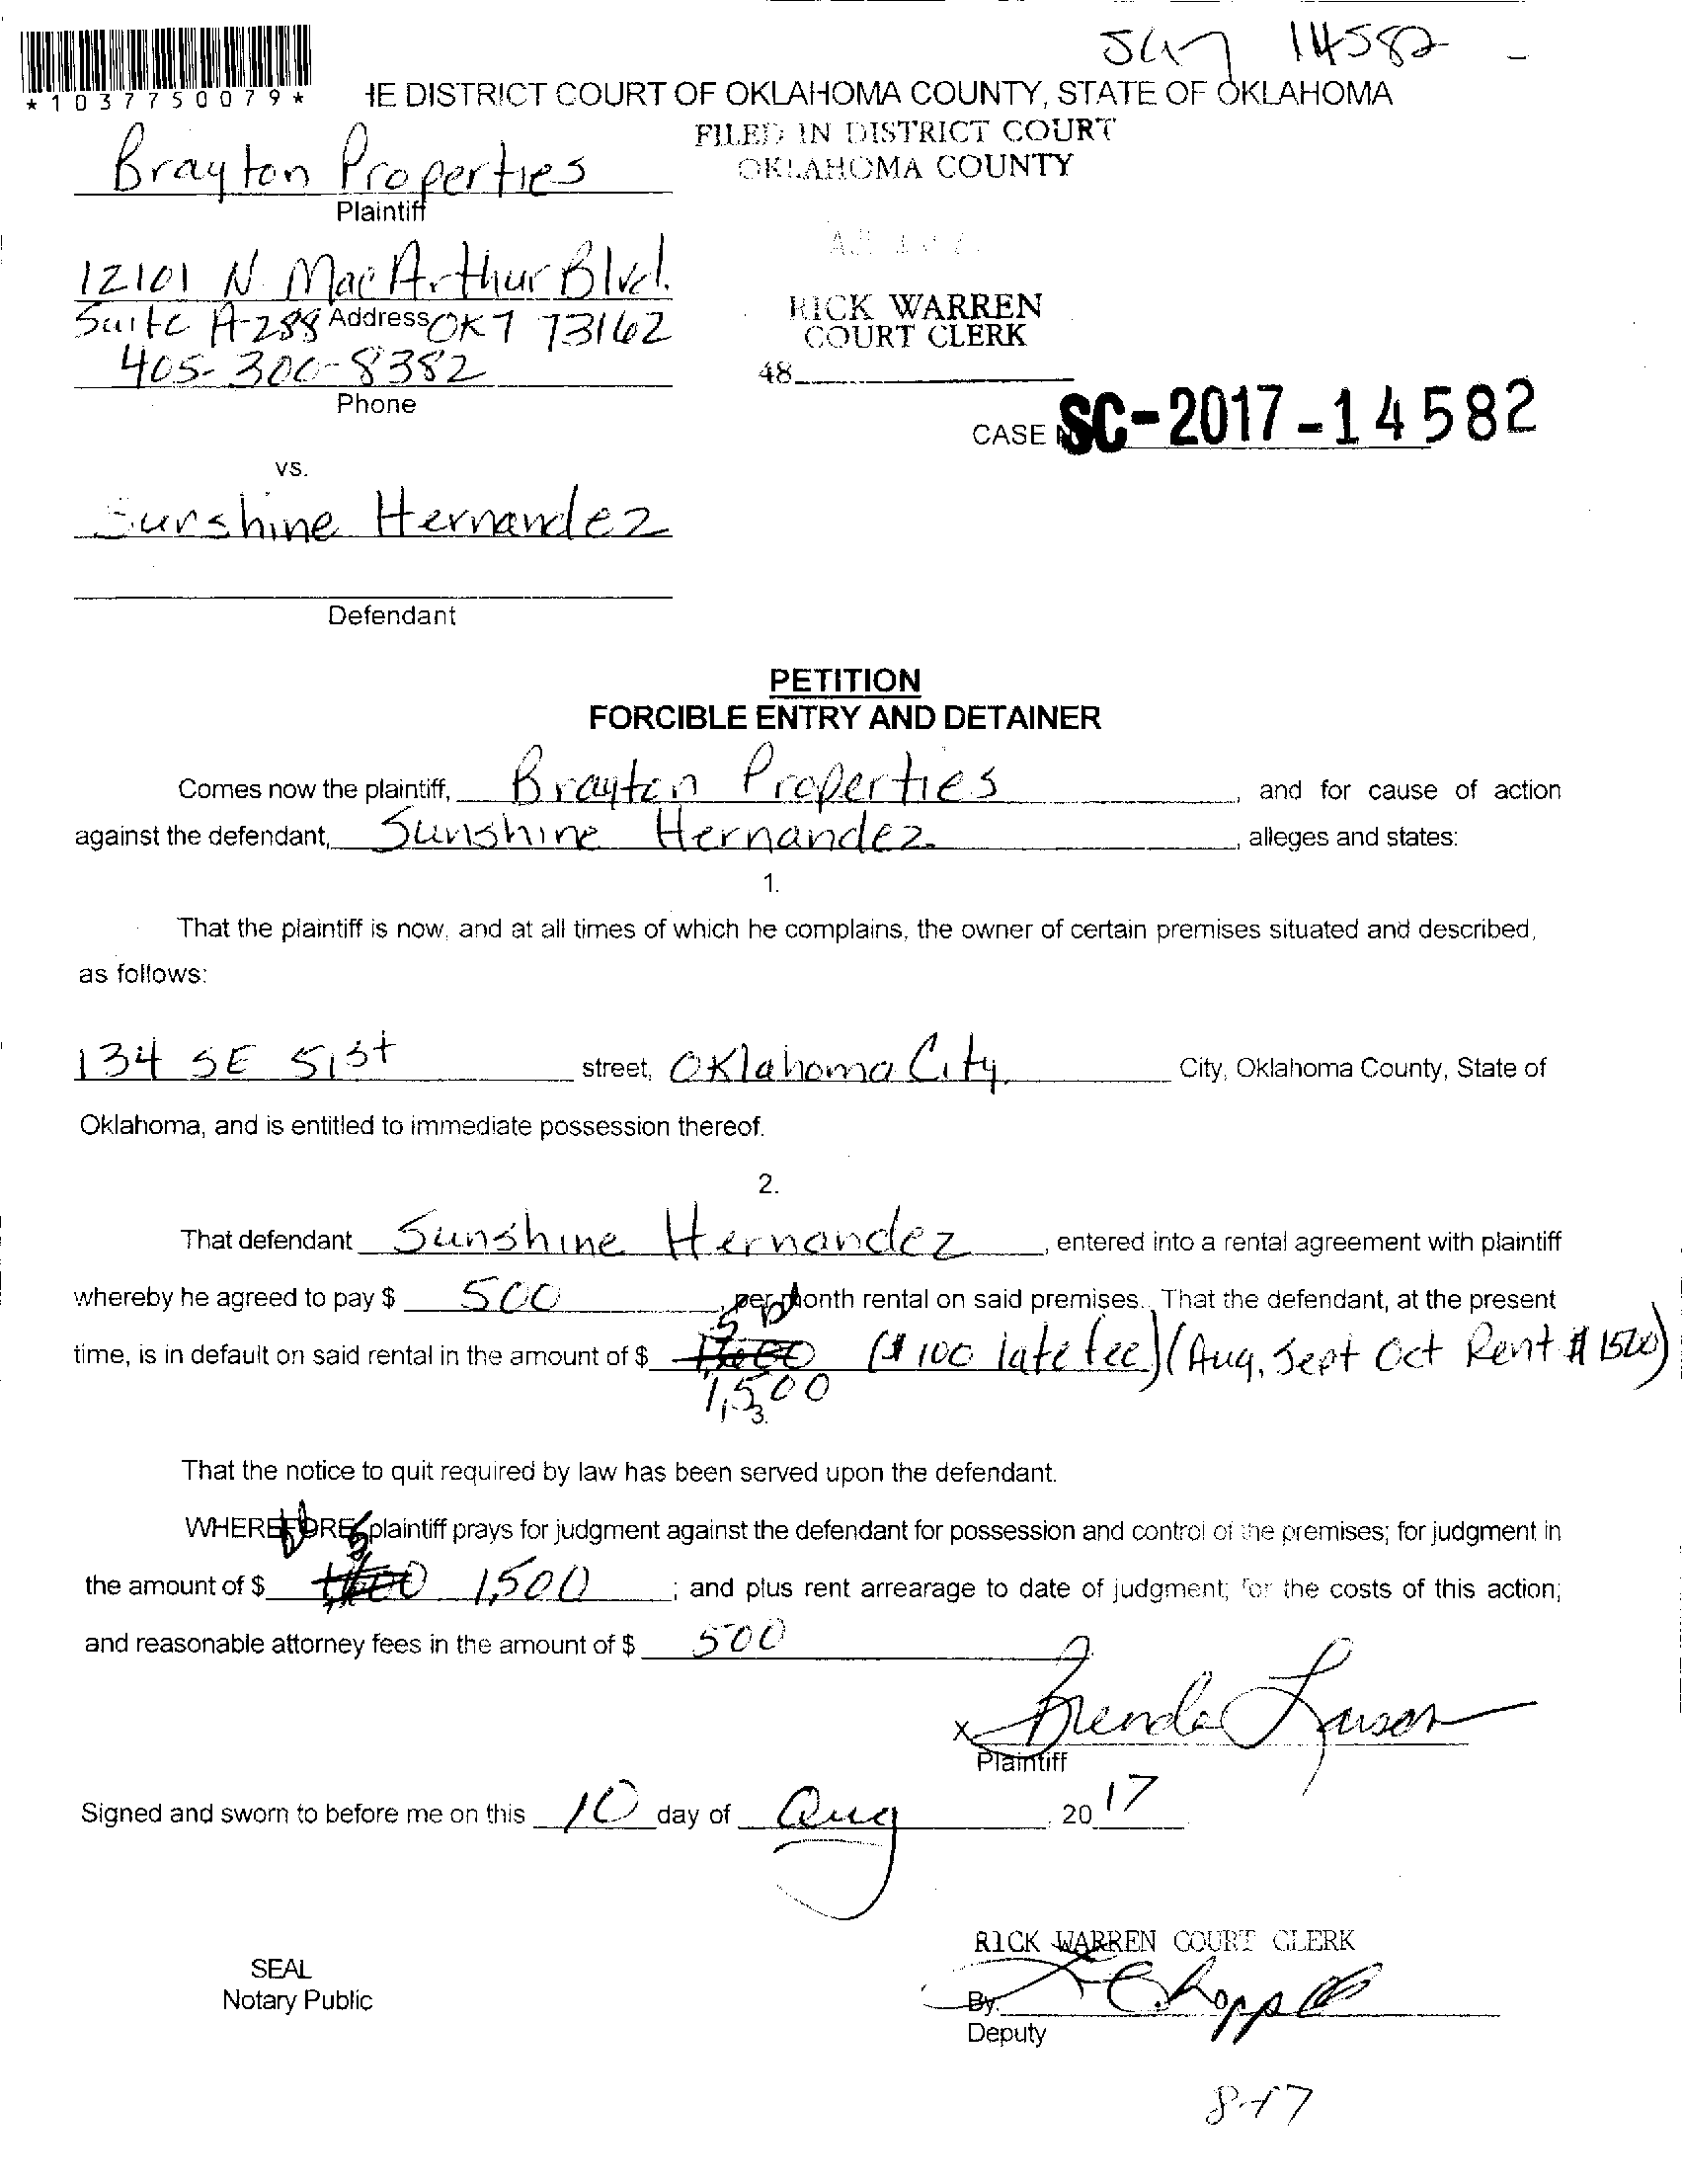 SC17 14582
*1037750079*
HE DISTRICT COURT OF OKLAHOMA COUNTY, STATE OF OKLAHOMA
FILED IN DISTRICT COURT
OKLAHOMA COUNTY
Brayton Properties
Plaintiff
12101 N. MacArthur Blvd.
RICK WARREN
Suite A-288 Address OK 73162
COURT CLERK
405-300-8382
48
Phone
CASE SC-2017-14582
vs.
Sunshine Hernandez
Defendant
PETITION
FORCIBLE ENTRY AND DETAINER
Comes now the plaintiff, Brayton Properties, and for cause of action
against the defendant, Sunshine Hernandez, alleges and states:
1.
That the plaintiff is now, and at all times of which he complains, the owner of certain premises situated and described,
as follows:
134 SE 51st street, Oklahoma City, City, Oklahoma County, State of
Oklahoma, and is entitled to immediate possession thereof.
2.
That defendant Sunshine Hernandez, entered into a rental agreement with plaintiff
whereby he agreed to pay $ 500, per month rental on said premises. That the defendant, at the present
time, is in default on said rental in the amount of $ ($100 late fee) (Aug, Sept Oct Rent $1500)
1,500
3.
That the notice to quit required by law has been served upon the defendant.
WHEREFORE, plaintiff prays for judgment against the defendant for possession and control of the premises; for judgment in
the amount of $ 1,500; and plus rent arrearage to date of judgment; for the costs of this action;
and reasonable attorney fees in the amount of $ 500
x Brenda Larson
Plaintiff
Signed and sworn to before me on this 10 day of Aug, 20 17
RICK WARREN COURT CLERK
SEAL
Notary Public
By.
Deputy
8-17